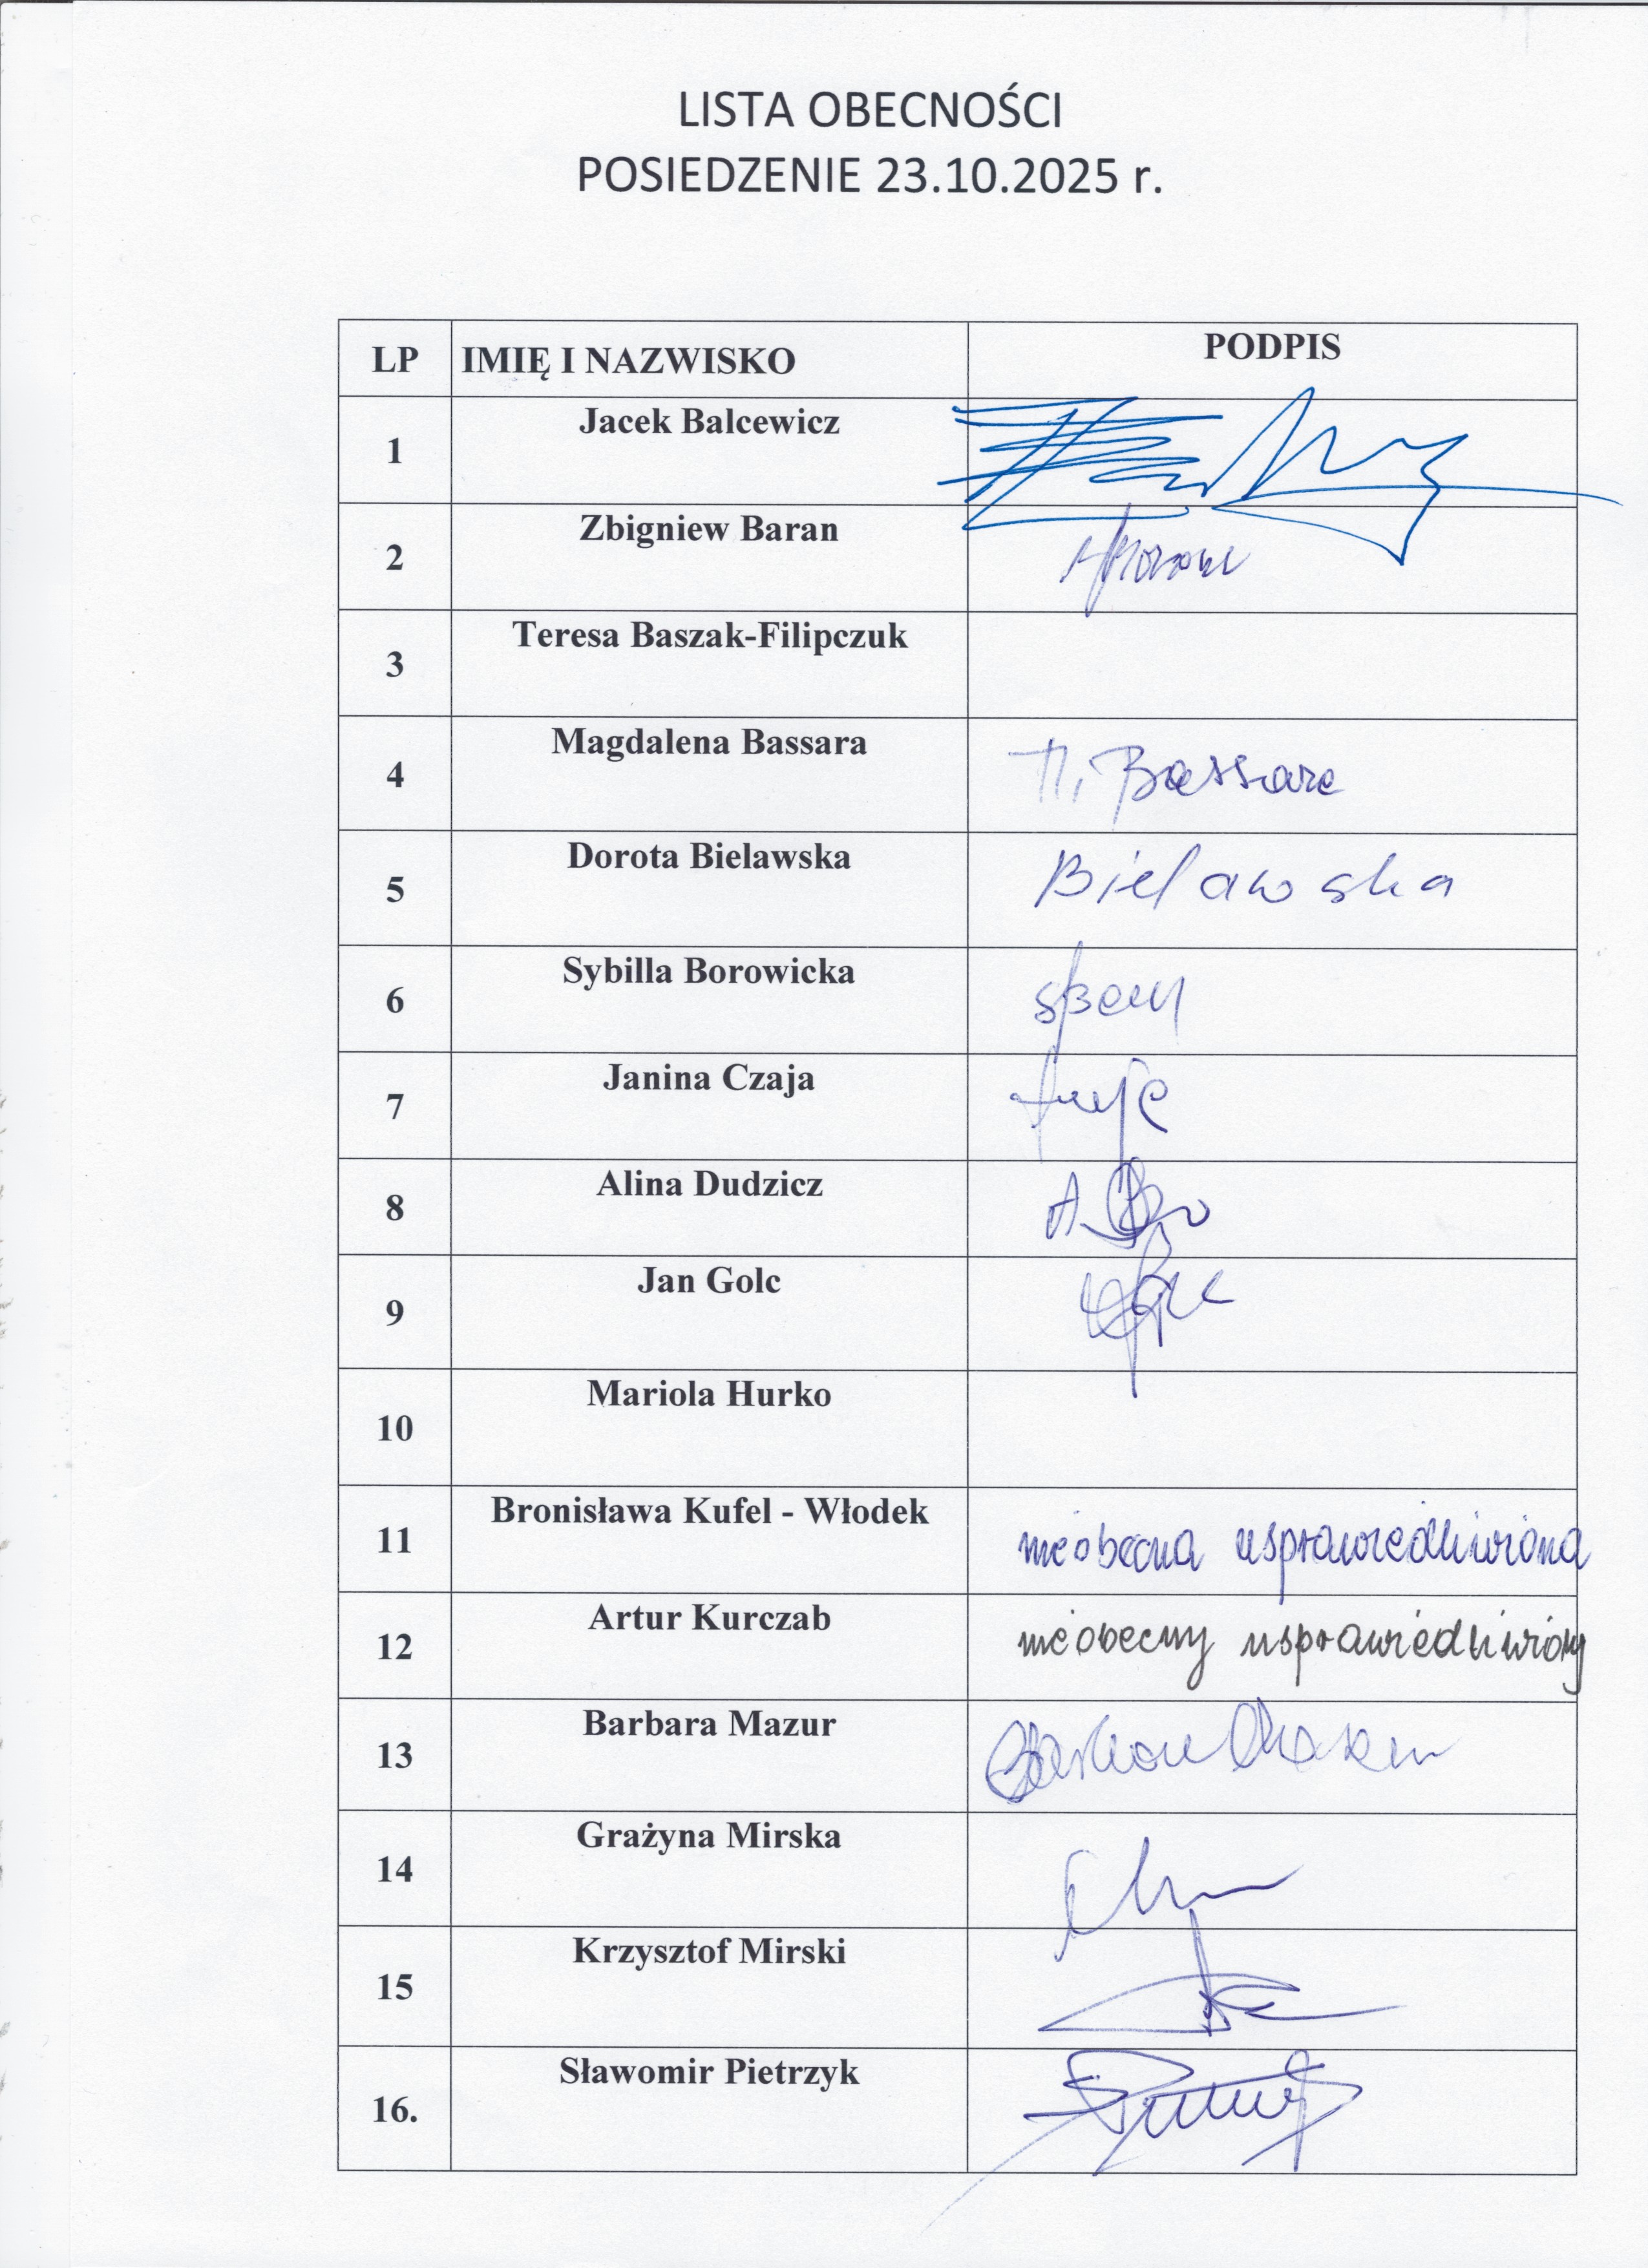 LISTA OBECNOŚCI
POSIEDZENIE 23.10.2025 r.
LP IMIĘ I NAZWISKO PODPIS
1 Jacek Balcewicz
2 Zbigniew Baran
3 Teresa Baszak-Filipczuk
4 Magdalena Bassara M. Bassara
5 Dorota Bielawska Bielawska
6 Sybilla Borowicka
7 Janina Czaja
8 Alina Dudzicz
9 Jan Golc
10 Mariola Hurko
11 Bronisława Kufel - Włodek nieobecna usprawiedliwiona
12 Artur Kurczab nieobecny usprawiedliwiony
13 Barbara Mazur Barbara Mazur
14 Grażyna Mirska
15 Krzysztof Mirski
16. Sławomir Pietrzyk